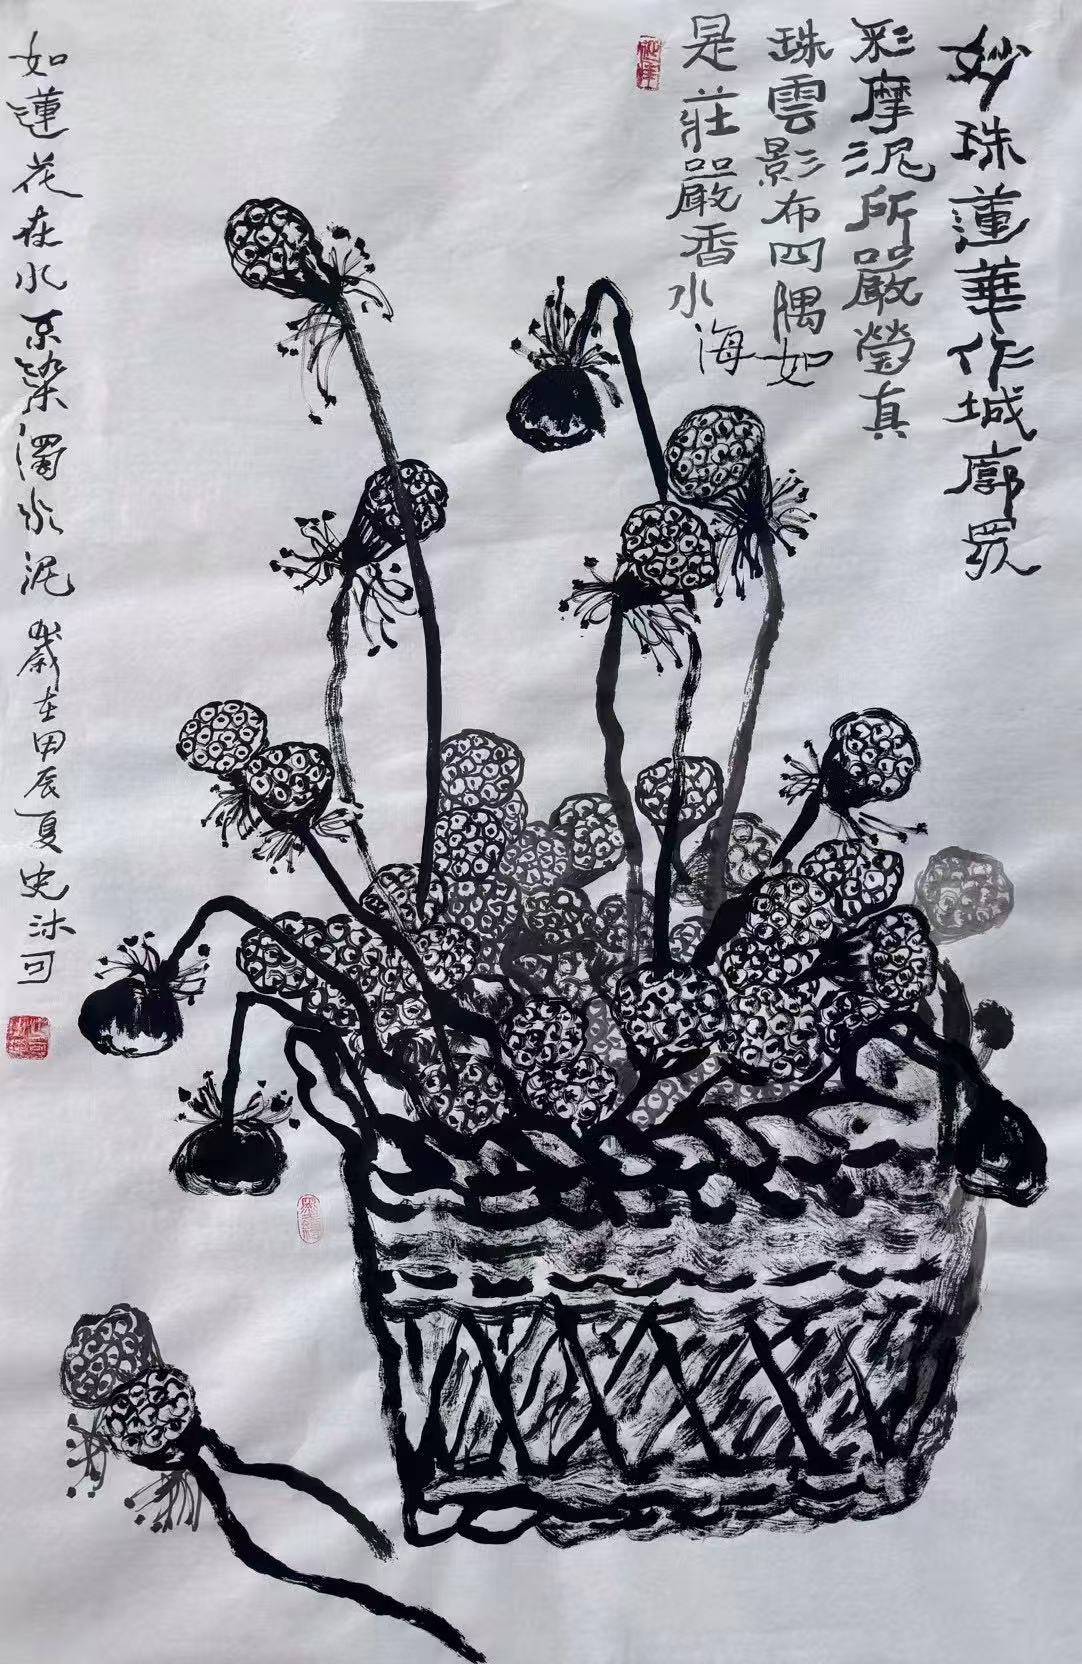 妙珠蓮華作城廓眾
彩摩泥所嚴瑩真
珠雲影布四隅如
是莊嚴香水海
如蓮花在水不染濁水泥 歲在甲辰夏 沐可